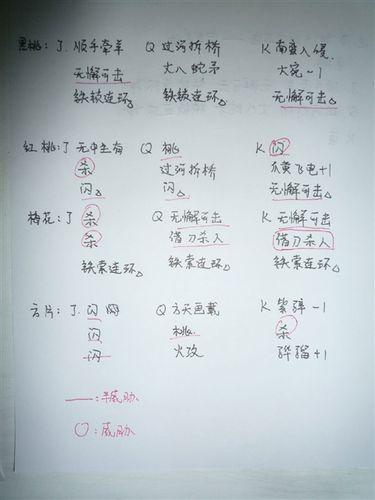 黑桃：J. 顺手牵羊 Q 过河拆桥 K 南蛮入侵
无懈可击 丈八蛇矛 大宛-1
铁锁连环△ 铁锁连环△ 无懈可击△
红桃：J 无中生有 Q 桃 K 闪
杀 过河拆桥 爪黄飞电+1
闪△ 闪△ 无懈可击△
梅花：J 杀 Q 无懈可击 K 无懈可击
杀 借刀杀人 借刀杀人
铁索连环△ 铁索连环△ 铁索连环△
方片：J. 闪 Q 方天画戟 K 紫骍-1
闪 桃 杀
闪 火攻 骅骝+1
——：半威胁
○：威胁